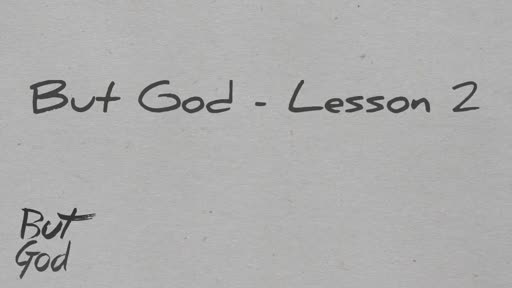 But God - Lesson 2
But
God